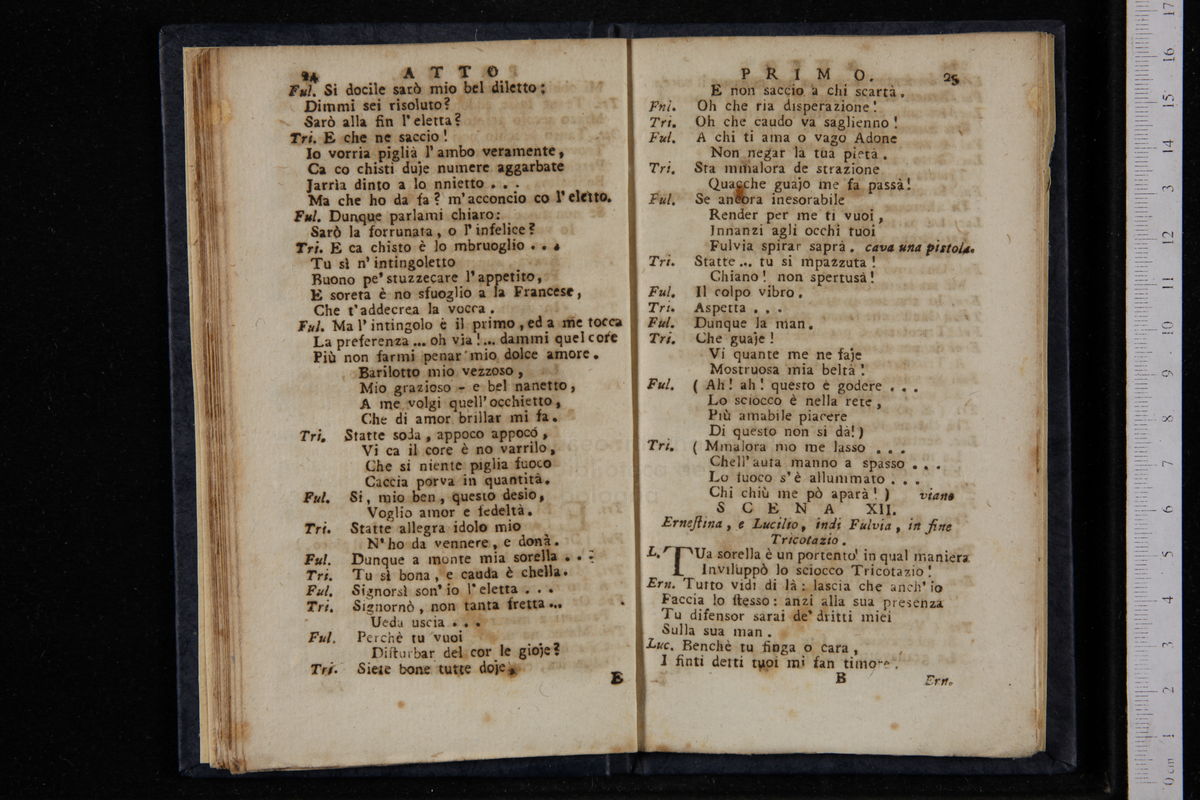 24 ATTO
Ful. Si docile sarò mio bel diletto:
Dimmi sei risoluto?
Sarò alla fin l'eletta?
Tri. E che ne saccio!
Io vorria piglià l'ambo veramente,
Ca co chisti duje numere aggarbate
Jarrìa dinto a lo nnietto . . .
Ma che ho da fa? m'acconcio co l'eletto.
Ful. Dunque parlami chiaro:
Sarò la forrunata, o l'infelice?
Tri. E ca chisto è lo mbruoglio . . .
Tu sì n'intingoletto
Buono pe' stuzzecare l'appetito,
E soreta è no sfuoglio a la Francese,
Che t'addecrea la vocca.
Ful. Ma l'intingolo è il primo, ed a me tocca
La preferenza ... oh via!... dammi quel core
Più non farmi penar mio dolce amore.
Barilotto mio vezzoso,
Mio grazioso - e bel nanetto,
A me volgi quell'occhietto,
Che di amor brillar mi fa.
Tri. Statte soda, appoco appoco,
Vi ca il core è no varrilo,
Che si niente piglia fuoco
Caccia porva in quantità.
Ful. Si, mio ben, questo desio,
Voglio amor e fedeltà.
Tri. Statte allegra idolo mio
N'ho da vennere, e donà.
Ful. Dunque a monte mia sorella . . .
Tri. Tu sì bona, e cauda è chella.
Ful. Signorsì son'io l'eletta . . .
Tri. Signornò, non tanta fretta ...
Ueda uscia . . .
Ful. Perchè tu vuoi
Disturbar del cor le gioje?
Tri. Siete bone tutte doje,
E
PRIMO. 25
E non saccio a chi scartà.
Fnl. Oh che ria disperazione!
Tri. Oh che caudo va saglienno!
Ful. A chi ti ama o vago Adone
Non negar la tua pietà.
Tri. Sta mmalora de strazione
Quacche guajo me fa passà!
Ful. Se ancora inesorabile
Render per me ti vuoi,
Innanzi agli occhi tuoi
Fulvia spirar saprà. cava una pistola.
Tri. Statte ... tu si mpazzuta!
Chiano! non spertusà!
Ful. Il colpo vibro.
Tri. Aspetta . . .
Ful. Dunque la man.
Tri. Che guaje!
Vi quante me ne faje
Mostruosa mia beltà!
Ful. ( Ah! ah! questo è godere . . .
Lo sciocco è nella rete,
Più amabile piacere
Di questo non si dà!)
Tri. ( Mmalora mo me lasso . . .
Chell'auta manno a spasso . . .
Lo fuoco s'è allummato . . .
Chi chiù me pò aparà! ) viano
SCENA XII.
Ernestina, e Lucilio, indi Fulvia, in fine
Tricotazio.
L. TUa sorella è un portento! in qual maniera
Inviluppò lo sciocco Tricotazio!
Ern. Tutto vidi di là: lascia che anch'io
Faccia lo stesso: anzi alla sua presenza
Tu difensor sarai de' dritti miei
Sulla sua man.
Luc. Benchè tu finga o cara,
I finti detti tuoi mi fan timore.
B Ern.